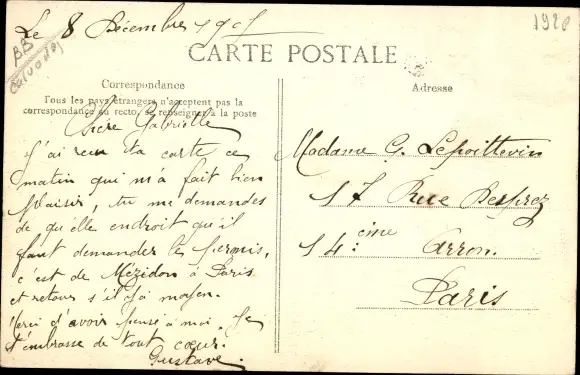 Le 8 Décembre
1928
BB
Calvados
CARTE POSTALE
Correspondance
Tous les pays étrangers n'acceptent pas la
correspondance au recto, se renseigner à la poste
Adresse
Chère Gabrielle
J'ai reçu ta carte ce
matin qui m'a fait bien
plaisir, tu me demandes
de qu'elle endroit qu'il
faut demander les permis,
c'est de Mézidon à Paris
et retour s'il y a moyen.
Merci d'avoir pensé à moi. Je
t'embrasse de tout cœur.
Gustave.
Madame G. Lepoittevin
17 Rue Desprez
14 eme Arron.
Paris